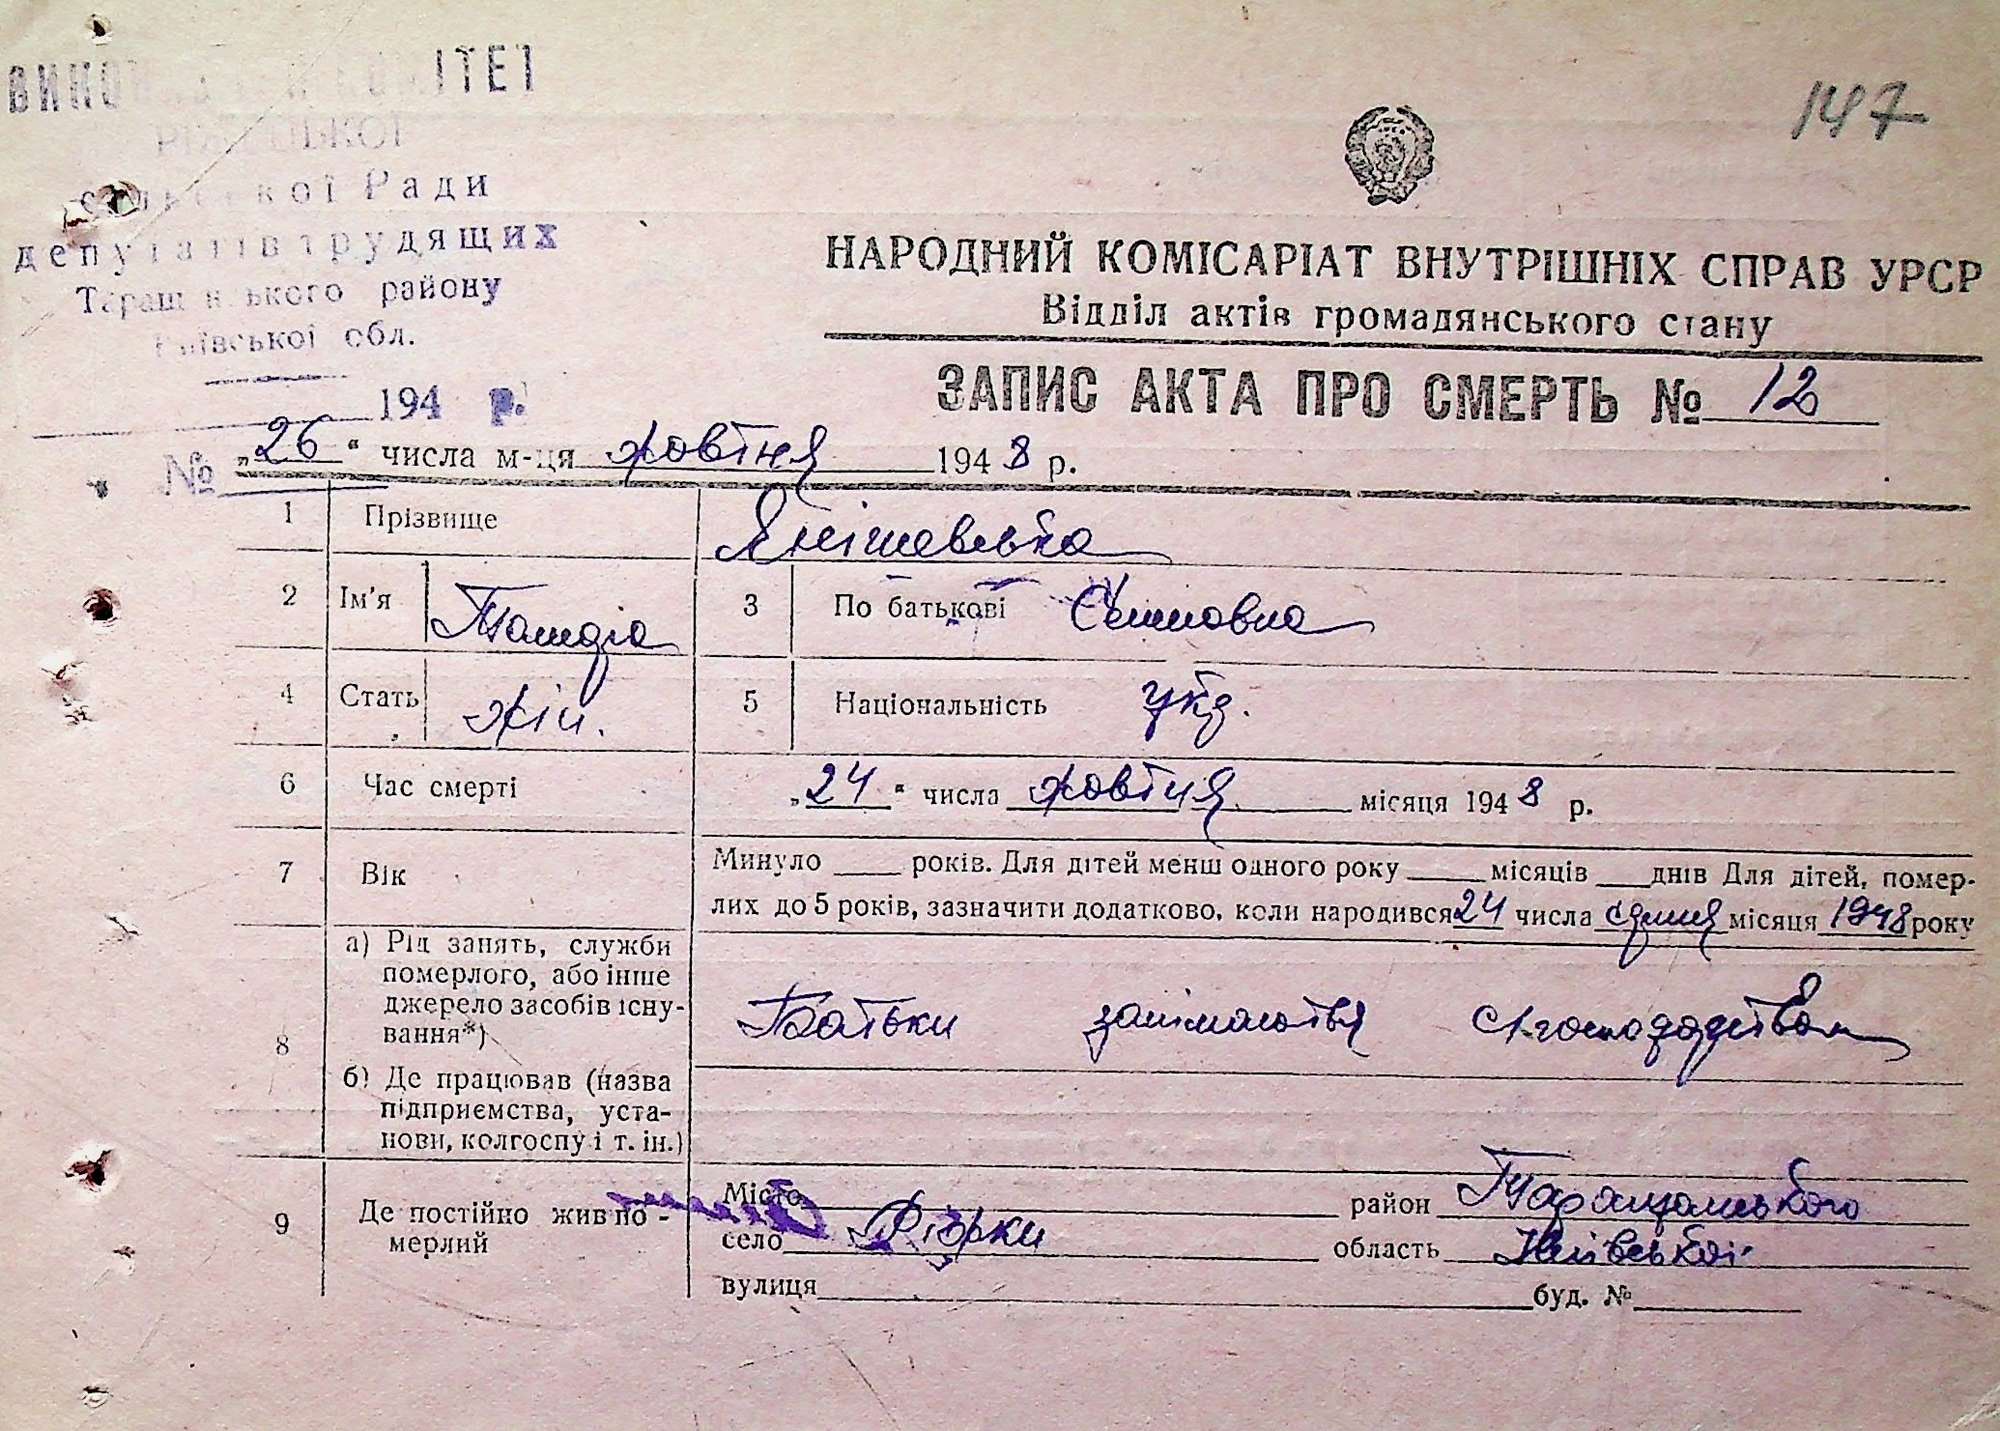 147
ВИКОНАВЧИЙ КОМІТЕТ
сільської Ради
депутатів трудящих
Таращанського району
Київської обл.
194 р.
№
НАРОДНИЙ КОМІСАРІАТ ВНУТРІШНІХ СПРАВ УРСР
Відділ актів громадянського стану
ЗАПИС АКТА ПРО СМЕРТЬ № 12
„26“ числа м-ця жовтня 1948 р.
1 Прізвище Янішевська
2 Ім'я 3 По батькові
4 Стать жін. 5 Національність укр.
6 Час смерті „24“ числа жовтня місяця 1948 р.
7 Вік Минуло ___ років. Для дітей менш одного року ___ місяців ___ днів Для дітей, помер-
лих до 5 років, зазначити додатково, коли народився 24 числа серпня місяця 1948 року
8 а) Рід занять, служби
померлого, або інше
джерело засобів існу-
вання*)
Батьки занімаються с/господарством
б) Де працював (назва
підприємства, уста-
нови, колгоспу і т. ін.)
9 Де постійно жив по-
мерлий
Місто район Таращанського
село область Київської
вулиця буд. №